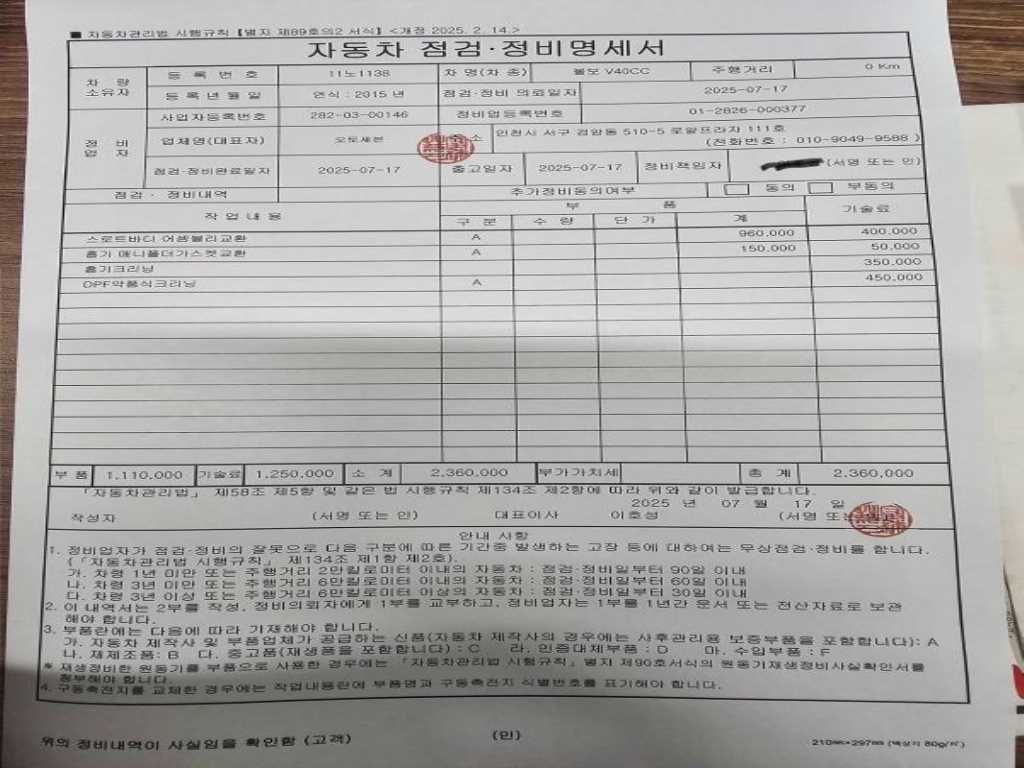 ■ 자동차관리법 시행규칙【별지 제89호의2 서식】<개정 2025. 2. 14.>
자동차 점검·정비명세서
차 량 소유자 등 록 번 호 11노1138 차 명(차 종) 볼보 V40CC 주행거리 0 Km
등 록 년 월 일 연식 : 2015 년 점검·정비 의뢰일자 2025-07-17
정 비 업 자 사업자등록번호 282-03-00146 정비업등록번호 01-2826-000377
업체명(대표자) 오토세븐 주 소 인천시 서구 검암동 510-5 로얄프라자 111호
(전화번호 : 010-9049-9588 )
점검·정비완료일자 2025-07-17 출고일자 2025-07-17 정비책임자 (서명 또는 인)
점검 · 정비내역 추가정비동의여부 동의 부동의
작 업 내 용 부 품 기술료
구 분 수 량 단 가 계
스로트바디 어셈블리교환 A 960,000 400,000
흡기 매니폴더가스켓교환 A 150,000 50,000
흡기크리닝 350,000
DPF약품식크리닝 A 450,000
부 품 1,110,000 기술료 1,250,000 소 계 2,360,000 부가가치세 총 계 2,360,000
「자동차관리법」 제58조 제5항 및 같은 법 시행규칙 제134조 제2항에 따라 위와 같이 발급합니다.
2025 년 07 월 17 일
작성자 (서명 또는 인) 대표이사 이호성 (서명 또는
안내 사항
1. 정비업자가 점검·정비의 잘못으로 다음 구분에 따른 기간중 발생하는 고장 등에 대하여는 무상점검·정비를 합니다.
(「자동차관리법 시행규칙」 제134조 제1항 제2호).
가. 차령 1년 미만 또는 주행거리 2만킬로미터 이내의 자동차 : 점검·정비일부터 90일 이내
나. 차령 3년 미만 또는 주행거리 6만킬로미터 이내의 자동차 : 점검·정비일부터 60일 이내
다. 차령 3년 이상 또는 주행거리 6만킬로미터 이상의 자동차 : 점검·정비일부터 30일 이내
2. 이 내역서는 2부를 작성, 정비의뢰자에게 1부를 교부하고, 정비업자는 1부를 1년간 문서 또는 전산자료로 보관
해야 합니다.
3. 부품란에는 다음에 따라 기재해야 합니다.
가. 자동차 제작사 및 부품업체가 공급하는 신품(자동차 제작사의 경우에는 사후관리용 보증부품을 포함합니다): A
나. 재제조품: B 다. 중고품(재생품을 포함합니다) : C 라. 인증대체부품 : D 마. 수입부품 : F
* 재생정비한 원동기를 부품으로 사용한 경우에는 「자동차관리법 시행규칙」별지 제90호서식의 원동기재생정비사실확인서를
첨부해야 합니다.
4. 구동축전지를 교체한 경우에는 작업내용란에 부품명과 구동축전지 식별번호를 표기해야 합니다.
위의 정비내역이 사실임을 확인함 (고객) (인)
210㎜×297㎜ (백상지 80g/㎡)